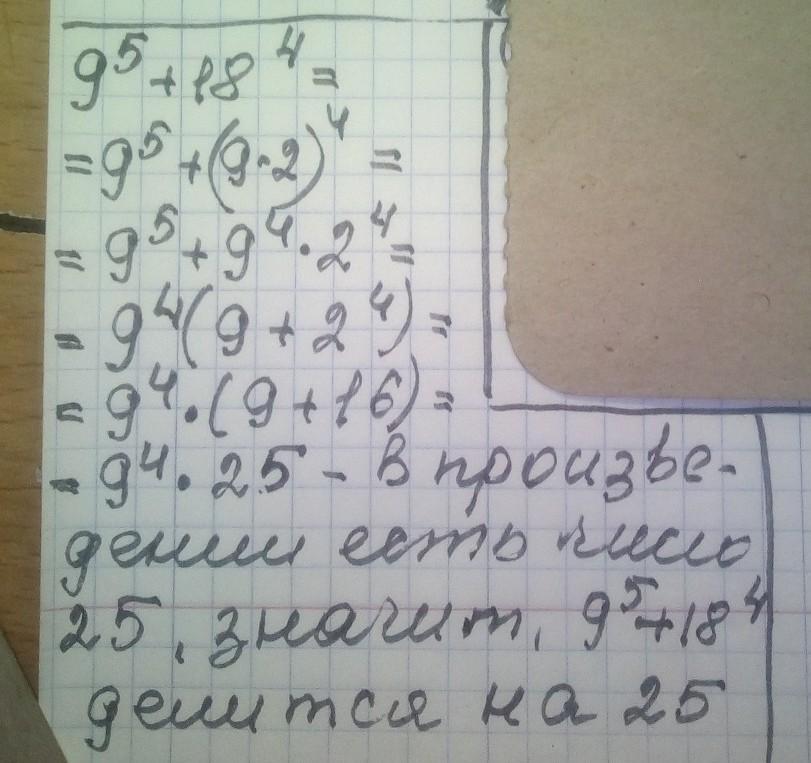 9⁵+18⁴=
=9⁵+(9·2)⁴=
=9⁵+9⁴·2⁴=
=9⁴(9+2⁴)=
=9⁴·(9+16)=
=9⁴·25 - в произве-
дении есть число
25, значит, 9⁵+18⁴
делится на 25